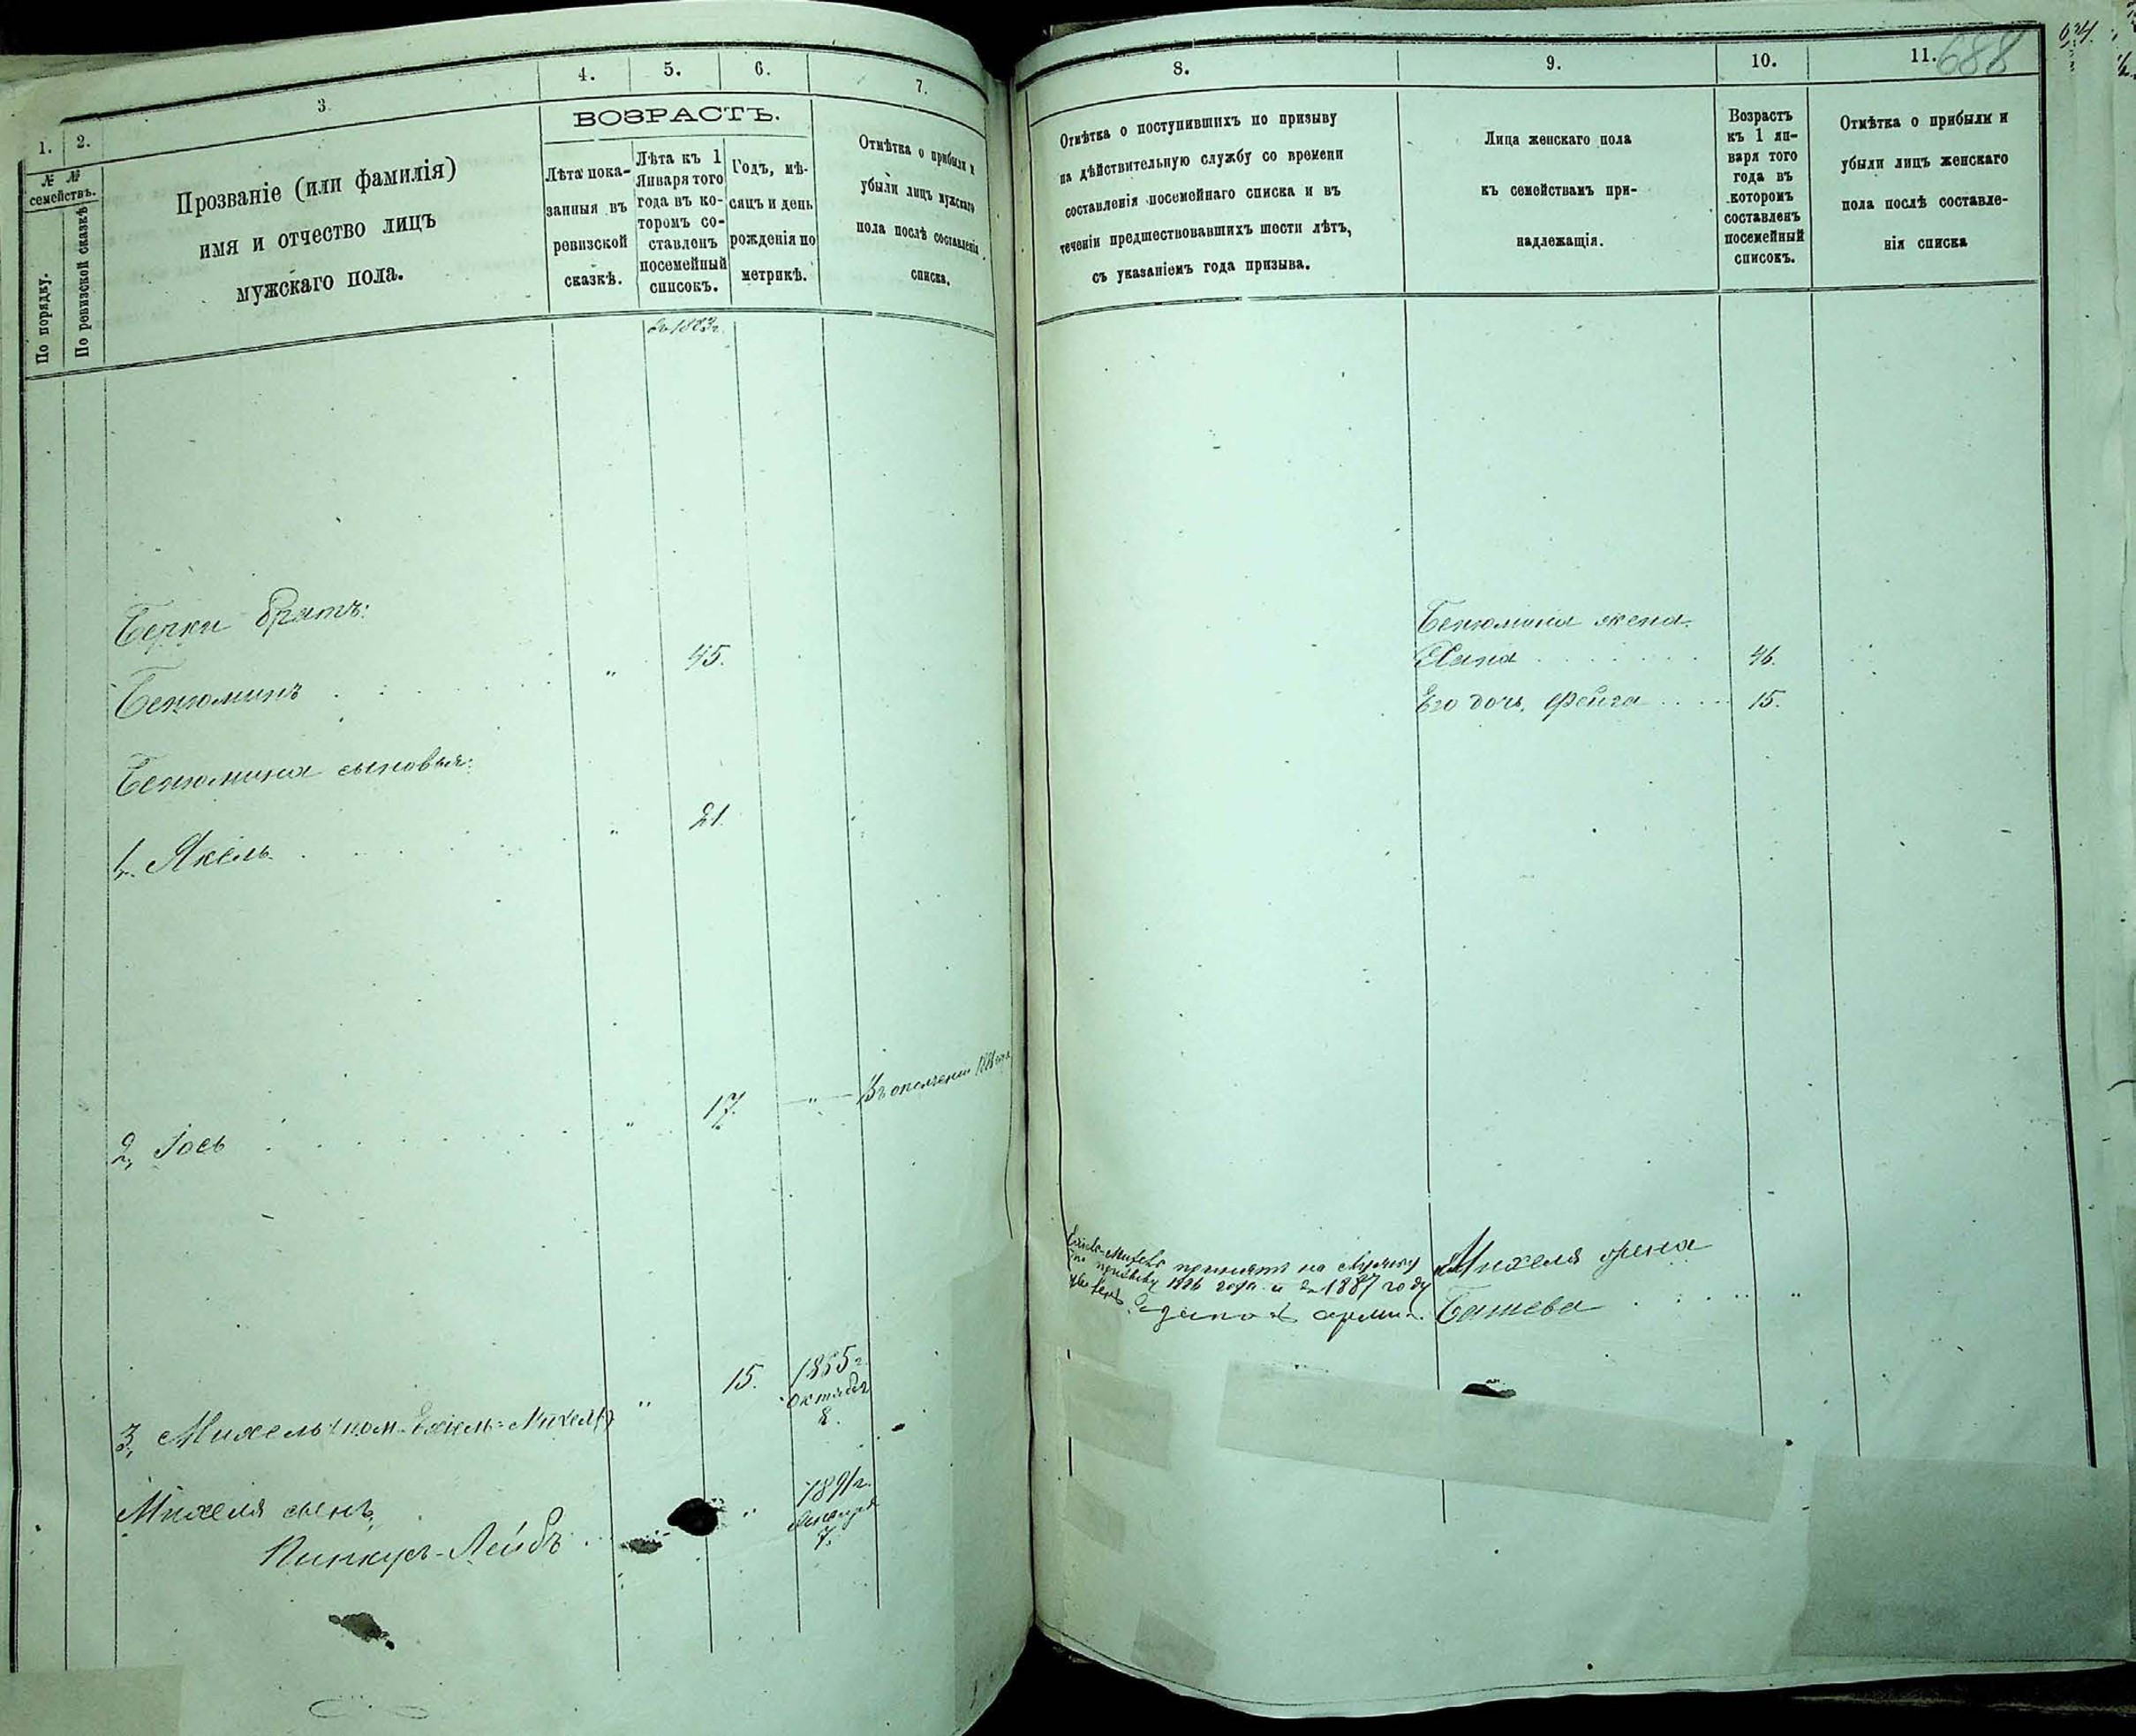 1.
2.
3.
4.
5.
6.
7.
№ №
семействъ.
По порядку.
По ревизской сказкѣ
Прозваніе (или фамилія)
имя и отчество лицъ
мужскаго пола.
ВОЗРАСТЪ.
Лѣта пока-
занныя въ
ревизской
сказкѣ.
Лѣта къ 1
Января того
года въ ко-
торомъ со-
ставленъ
посемейный
списокъ.
Годъ, мѣ-
сяцъ и день
рожденія по
метрикѣ.
Отмѣтка о прибыли и
убыли лицъ мужскаго
пола послѣ составленія
списка.
1883г.
Берки братъ:
Бенюминъ " 45.
Бенюмина сыновья:
1. Якель " 21.
2, Іось " 17. " Въ ополченіи
3, Михель " 15. 1865г.
Октября
8.
Михеля сынъ,
Пинкусъ-Лейбъ " 1891г.
Января
7.
8.
9.
10.
11.
688
634
Отмѣтка о поступившихъ по призыву
на дѣйствительную службу со времени
составленія посемейнаго списка и въ
теченіи предшествовавшихъ шести лѣтъ,
съ указаніемъ года призыва.
Лица женскаго пола
къ семействамъ при-
надлежащія.
Возрастъ
къ 1 ян-
варя того
года въ
которомъ
составленъ
посемейный
списокъ.
Отмѣтка о прибыли и
убыли лицъ женскаго
пола послѣ составле-
нія списка
Бенюмина жена
Хана 46.
Его дочь, Фейга 15.
принятъ на службу
по призыву 1886 года и въ 1887 году
арміи.
Михеля жена
Башева "